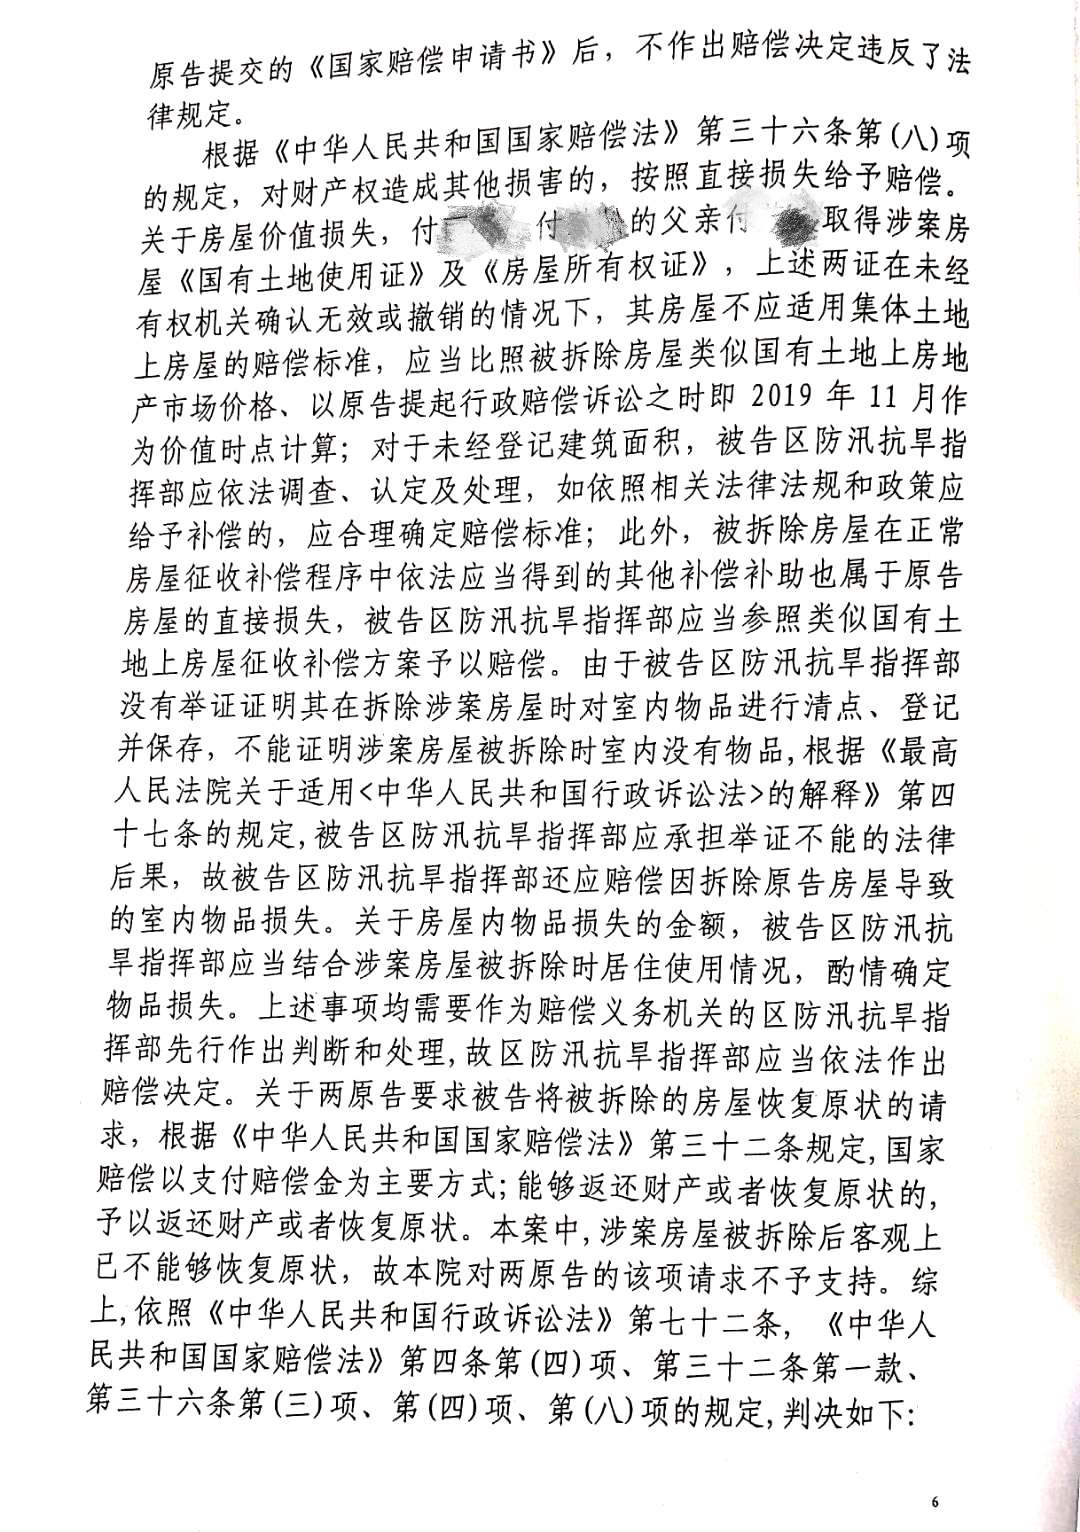 原告提交的《国家赔偿申请书》后，不作出赔偿决定违反了法
律规定。
根据《中华人民共和国国家赔偿法》第三十六条第(八)项
的规定，对财产权造成其他损害的，按照直接损失给予赔偿。
关于房屋价值损失，付 付 的父亲付 取得涉案房
屋《国有土地使用证》及《房屋所有权证》，上述两证在未经
有权机关确认无效或撤销的情况下，其房屋不应适用集体土地
上房屋的赔偿标准，应当比照被拆除房屋类似国有土地上房地
产市场价格、以原告提起行政赔偿诉讼之时即 2019 年 11 月作
为价值时点计算；对于未经登记建筑面积，被告区防汛抗旱指
挥部应依法调查、认定及处理，如依照相关法律法规和政策应
给予补偿的，应合理确定赔偿标准；此外，被拆除房屋在正常
房屋征收补偿程序中依法应当得到的其他补偿补助也属于原告
房屋的直接损失，被告区防汛抗旱指挥部应当参照类似国有土
地上房屋征收补偿方案予以赔偿。由于被告区防汛抗旱指挥部
没有举证证明其在拆除涉案房屋时对室内物品进行清点、登记
并保存，不能证明涉案房屋被拆除时室内没有物品,根据《最高
人民法院关于适用<中华人民共和国行政诉讼法>的解释》第四
十七条的规定,被告区防汛抗旱指挥部应承担举证不能的法律
后果，故被告区防汛抗旱指挥部还应赔偿因拆除原告房屋导致
的室内物品损失。关于房屋内物品损失的金额，被告区防汛抗
旱指挥部应当结合涉案房屋被拆除时居住使用情况，酌情确定
物品损失。上述事项均需要作为赔偿义务机关的区防汛抗旱指
挥部先行作出判断和处理,故区防汛抗旱指挥部应当依法作出
赔偿决定。关于两原告要求被告将被拆除的房屋恢复原状的请
求，根据《中华人民共和国国家赔偿法》第三十二条规定,国家
赔偿以支付赔偿金为主要方式;能够返还财产或者恢复原状的,
予以返还财产或者恢复原状。本案中,涉案房屋被拆除后客观上
已不能够恢复原状，故本院对两原告的该项请求不予支持。综
上,依照《中华人民共和国行政诉讼法》第七十二条，《中华人
民共和国国家赔偿法》第四条第(四)项、第三十二条第一款、
第三十六条第(三)项、第(四)项、第(八)项的规定,判决如下:
6